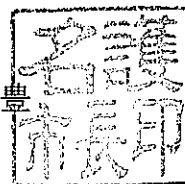 名護
市長印
豊